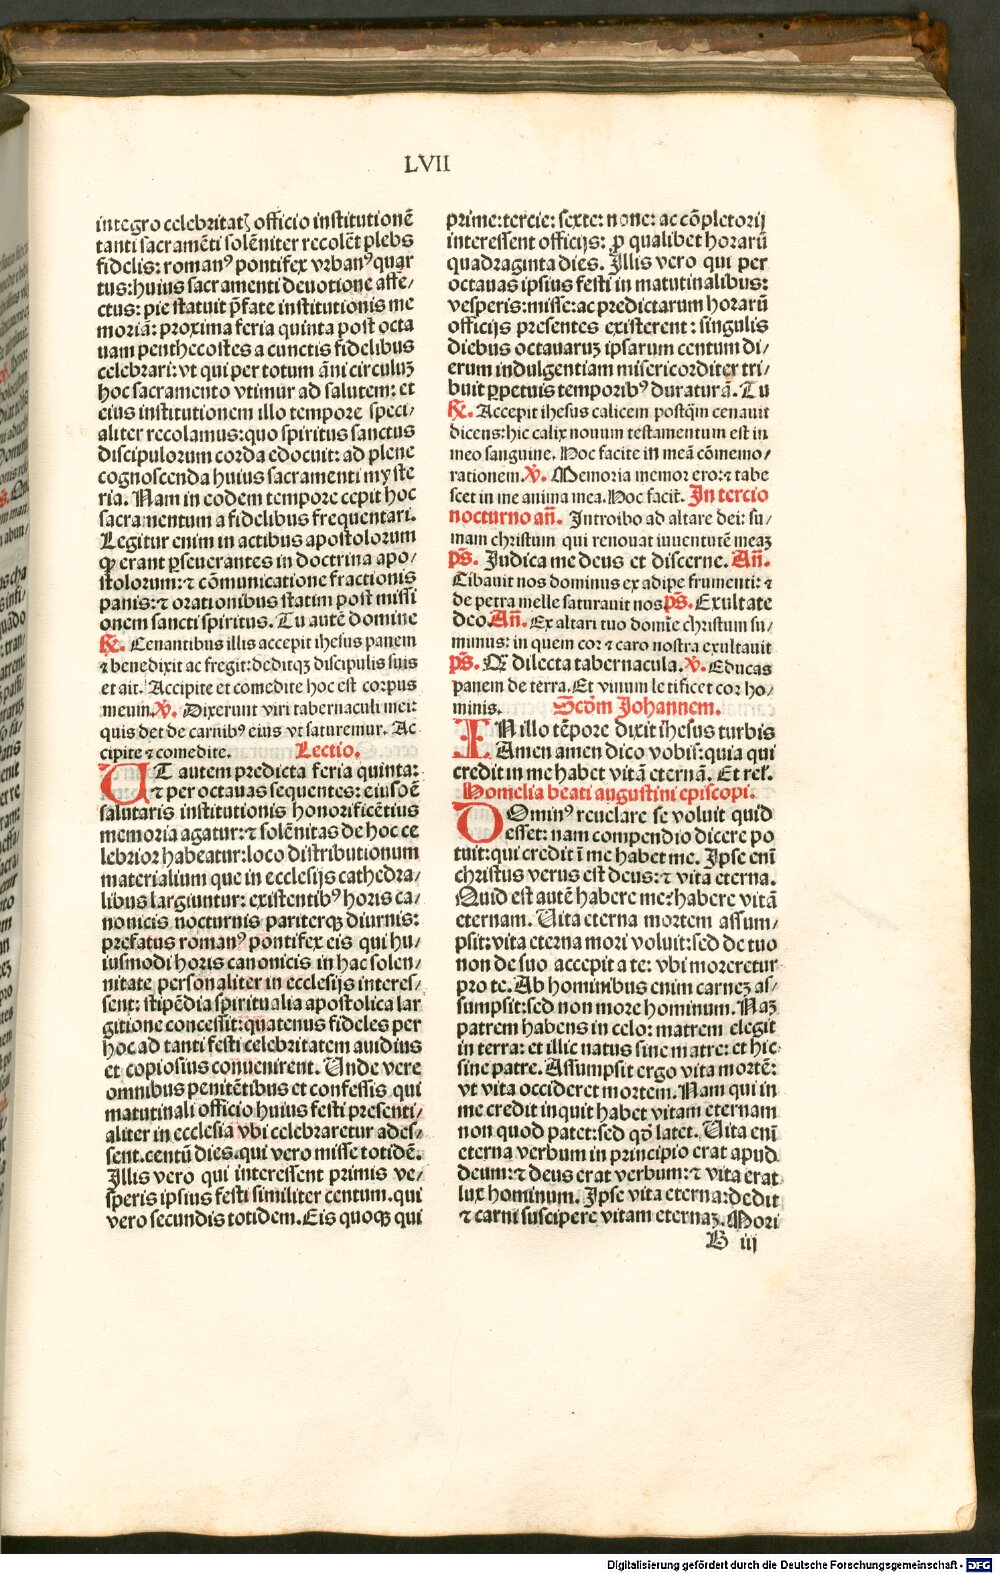 LVII
integro celebritatꝫ officio institutionē
tanti sacramēti solēniter recolēt plebs
fidelis: romanꝰ pontifex vrbanꝰ quar
tus: huius sacramenti deuotione affe/
ctus: pie statuit p̄fate institutionis me
moriā: proxima feria quinta post octa
uam penthecostes a cunctis fidelibus
celebrari: vt qui per totum āni circuluꝫ
hoc sacramento vtimur ad salutem: et
eius institutionem illo tempore speci/
aliter recolamus: quo spiritus sanctus
discipulorum corda edocuit: ad plene
cognoscenda huius sacramenti myste
ria. Nam in eodem tempore cepit hoc
sacramentum a fidelibus frequentari.
Legitur enim in actibus apostolorum
ꝙ erant ꝑseuerantes in doctrina apo/
stolorum: ⁊ cōmunicatione fractionis
panis: ⁊ orationibus statim post missi
onem sancti spiritus. Tu autē domine
℟. Cenantibus illis accepit ihesus panem
⁊ benedixit ac fregit: deditqꝫ discipulis suis
et ait. Accipite et comedite hoc est corpus
meum. ℣. Dixerunt viri tabernaculi mei:
quis det de carnibꝰ eius vt saturemur. Ac
cipite ⁊ comedite. Lectio.
UT autem predicta feria quinta:
⁊ per octauas sequentes: eiusdē
salutaris institutionis honorificētius
memoria agatur: ⁊ solēnitas de hoc ce
lebrior habeatur: loco distributionum
materialium que in ecclesijs cathedra/
libus largiuntur: existentibꝰ horis ca/
nonicis nocturnis pariterqꝫ diurnis:
prefatus romanꝰ pontifex eis qui hu/
iusmodi horis canonicis in hac solen/
nitate personaliter in ecclesijs interes/
sent: stipēdia spiritualia apostolica lar
gitione concessit: quatenus fideles per
hoc ad tanti festi celebritatem auidius
et copiosius conuenirent. Unde vere
omnibus penitētibus et confessis qui
matutinali officio huius festi presenti/
aliter in ecclesia vbi celebraretur ades/
sent. centū dies. qui vero misse totidē.
Illis vero qui interessent primis ve/
speris ipsius festi similiter centum. qui
vero secundis totidem. Eis quoqꝫ qui
prime: tercie: sexte: none: ac cōpletorij
interessent officijs: ꝓ qualibet horarū
quadraginta dies. Illis vero qui per
octauas ipsius festi in matutinalibus:
vesperis: misse: ac predictarum horarū
officijs presentes existerent: singulis
diebus octauaruꝫ ipsarum centum di/
erum indulgentiam misericorditer tri/
buit ꝑpetuis temporibꝰ duraturā. Tu
℟. Accepit ihesus calicem postq̄m cenauit
dicens: hic calix nouum testamentum est in
meo sanguine. Hoc facite in meā cōmemo/
rationem. ℣. Memoria memor ero: ⁊ tabe
scet in me anima mea. Hoc facit̄. In tercio
nocturno an̄. Introibo ad altare dei: su/
mam christum qui renouat iuuentutē meaꝫ
ps̄. Judica me deus et discerne. An̄.
Cibauit nos dominus ex adipe frumenti: ⁊
de petra melle saturauit nos ps̄. Exultate
deo. An̄. Ex altari tuo domīe christum su/
mimus: in quem cor ⁊ caro nostra exultauit
ps̄. Qꝫ dilecta tabernacula. ℣. Educas
panem de terra. Et vinum letificet cor ho/
minis. Scd̄m Johannem.
IN illo tēpore dixit ihesus turbis
Amen amen dico vobis: quia qui
credit in me habet vitā eternā. Et rel̄.
Homelia beati augustini episcopi.
DOminꝰ reuelare se voluit quid
esset: nam compendio dicere po
tuit: qui credit ī me habet me. Ipse enī
christus verus est deus: ⁊ vita eterna.
Quid est autē habere me: habere vitā
eternam. Uita eterna mortem assum/
psit: vita eterna mori voluit: sed de tuo
non de suo accepit a te: vbi moreretur
pro te. Ab hominibus enim carneꝫ as/
sumpsit: sed non more hominum. Naꝫ
patrem habens in celo: matrem elegit
in terra: et illic natus sine matre: et hic
sine patre. Assumpsit ergo vita mortē:
vt vita occideret mortem. Nam qui in
me credit inquit habet vitam eternam
non quod patet: sed qd̄ latet. Uita enī
eterna verbum in principio erat apud
deum: ⁊ deus erat verbum: ⁊ vita erat
lux hominum. Ipse vita eterna: dedit
⁊ carni suscipere vitam eternaꝫ. Mori
B iij
Digitalisierung gefördert durch die Deutsche Forschungsgemeinschaft - DFG